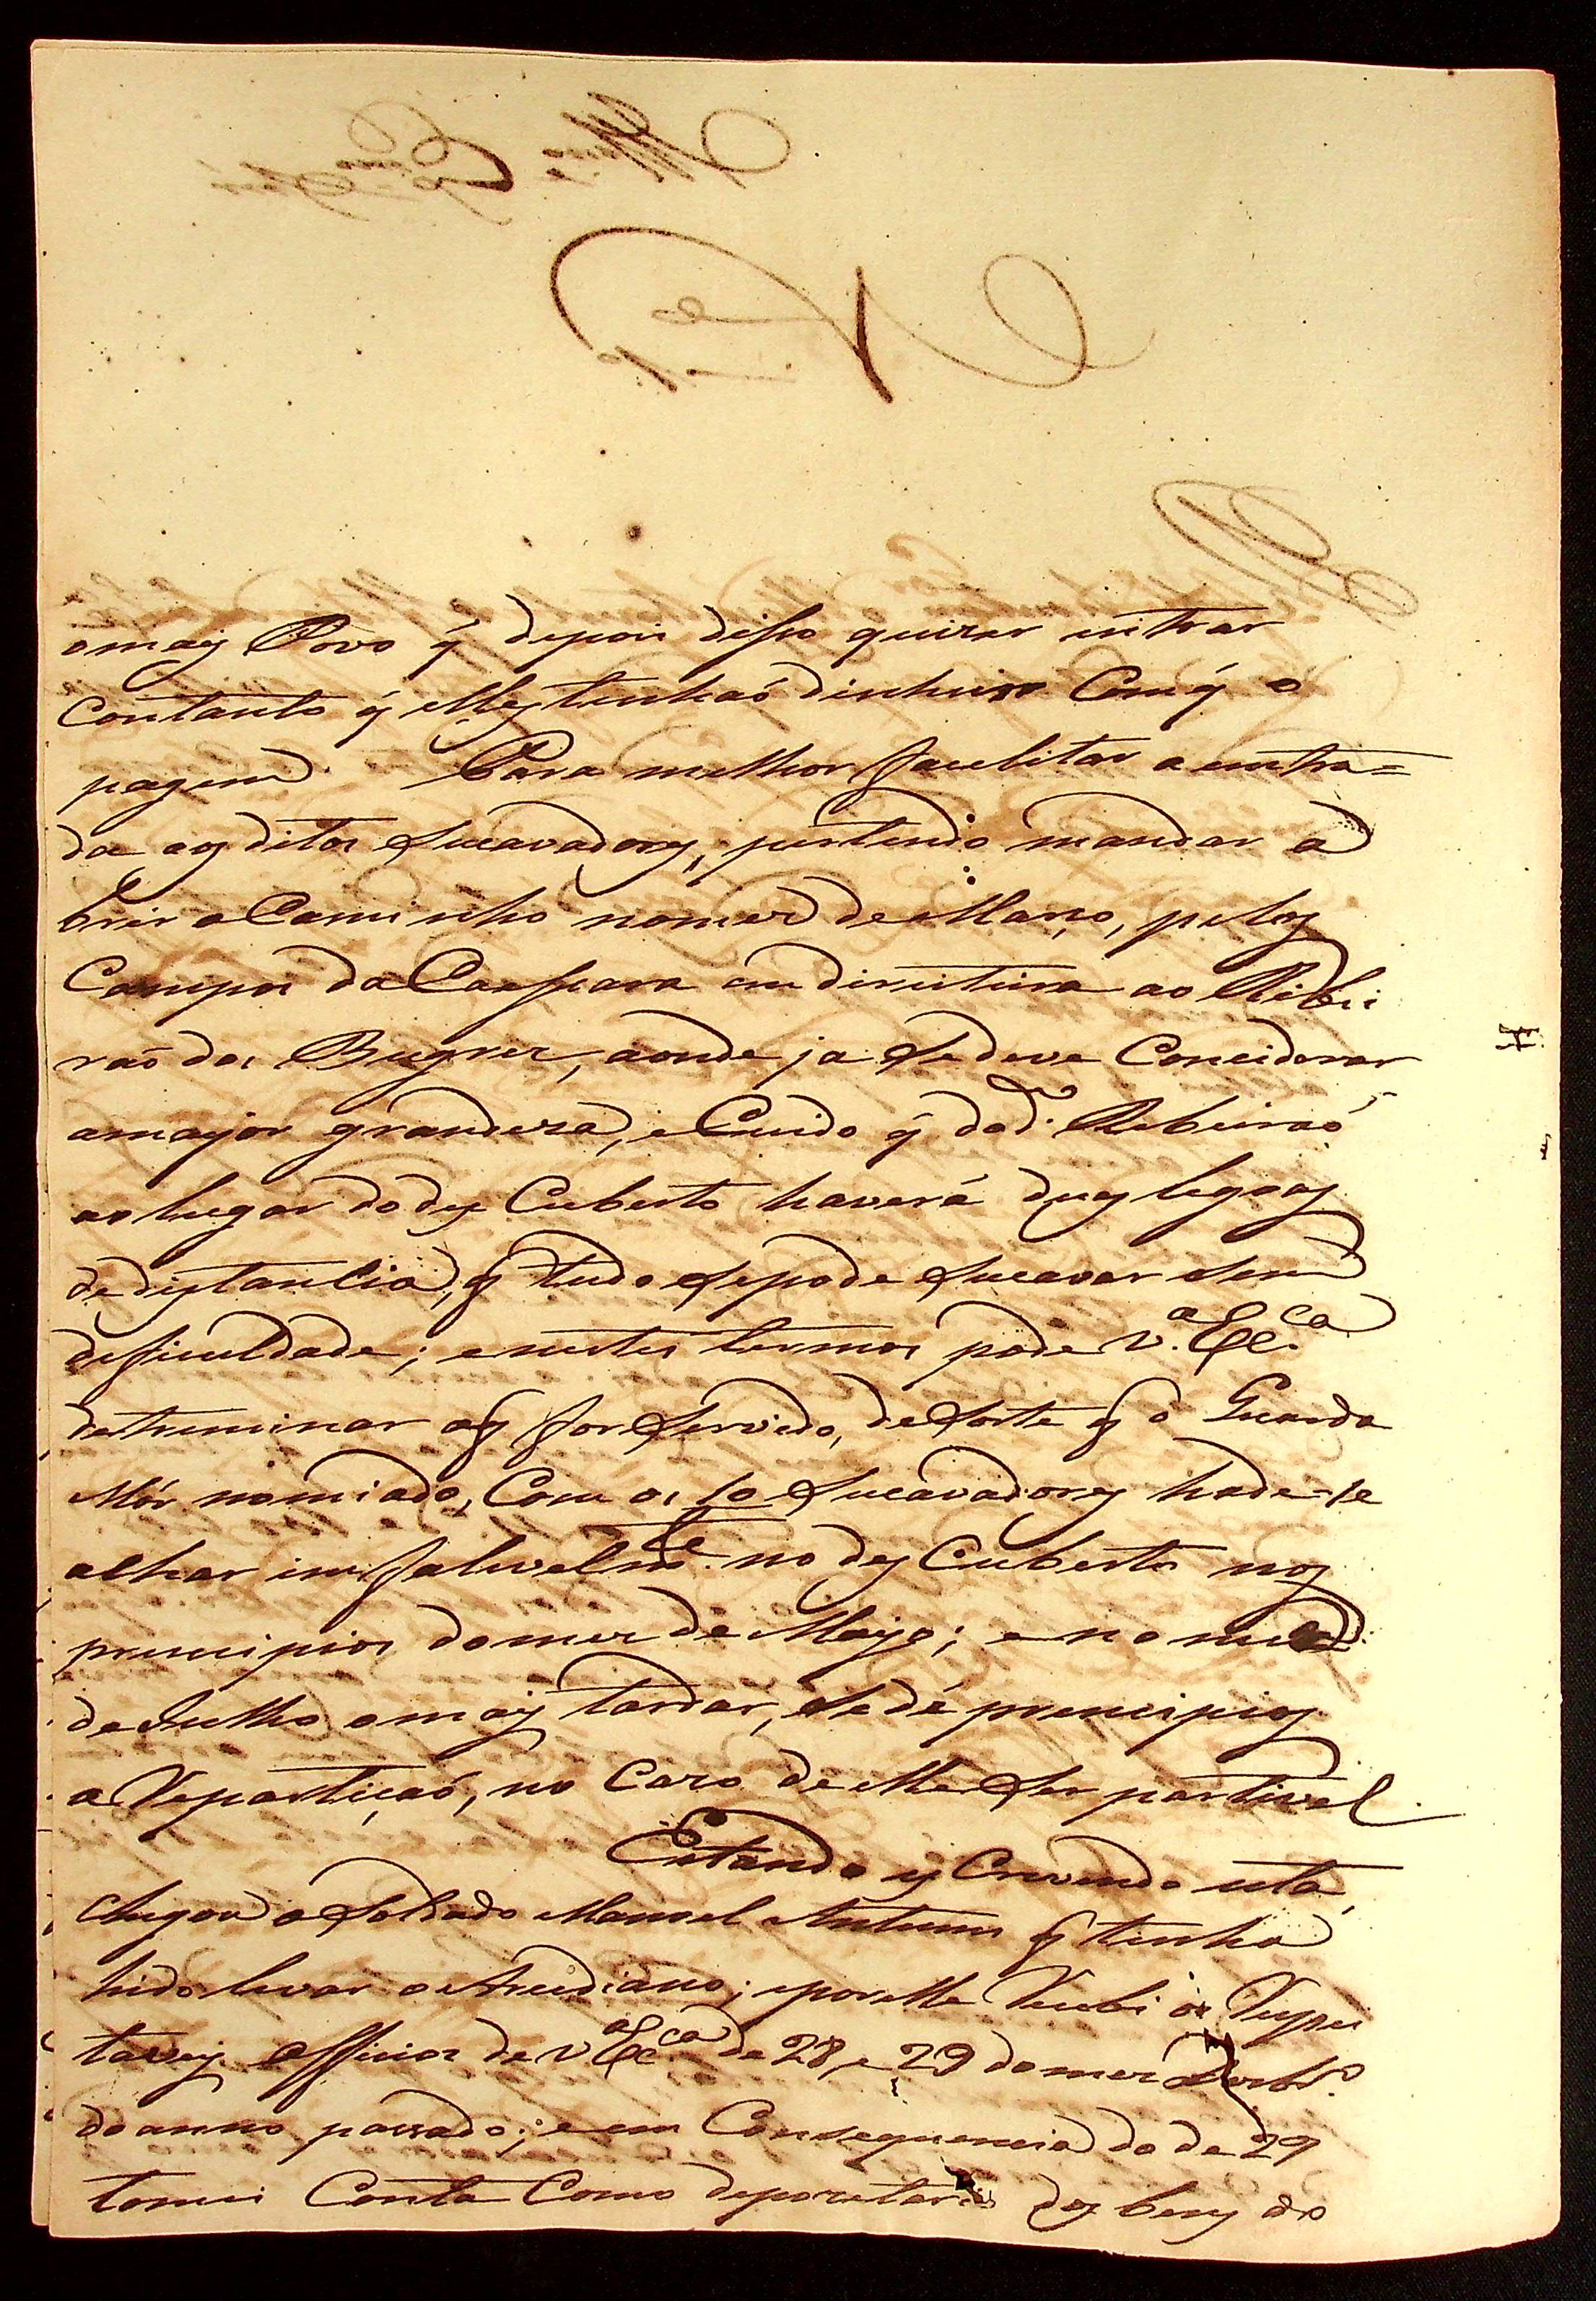 omais Povo q̃ depois disso quizer entrar
Contanto q̃ elles tenhaõ dinheiro Com q̃ o
pagem. Para melhor facelitar a entra=
da aos ditos Sucavadores, pertendo mandar a
brir o Caminho no mez de Março, pelos
Campos da Caaſsara em direitura ao Ribei
raõ dos Bugres, aonde ja Se deve Conciderar
a mayor grandeza, e Cuido q̃ do d.º Ribeiraõ
ao lugar do des Cuberto haverá duas legoas
de distancia, q̃ tudo Se pode Sucavar Sem
deficuldade; e nestes termos pode V.ª Ex.ca
detreminar oq̃ for Servido, de Sorte q̃ o Guarda
Mór nomiado, Com os 10 Sucavadores hade-se
alhar imfalivelm.te no des Cuberto nos
principios do mez de Mayo; e no mez
de Julho omais tardar, Se dê principios
a Repartiçaõ, no Cazo de elle Ser partivel.
Estando es Crevendo esta,
chegou o Soldado Manoel Antunes q̃ tinha
hido levar o; e por elle Recebi os Respei
taveis Officios de V.ª Ex.ca de 28, e 29 do mez
do anno passado; e em Consequencia do de 29
tomei Conta Como depozetario dos bens do